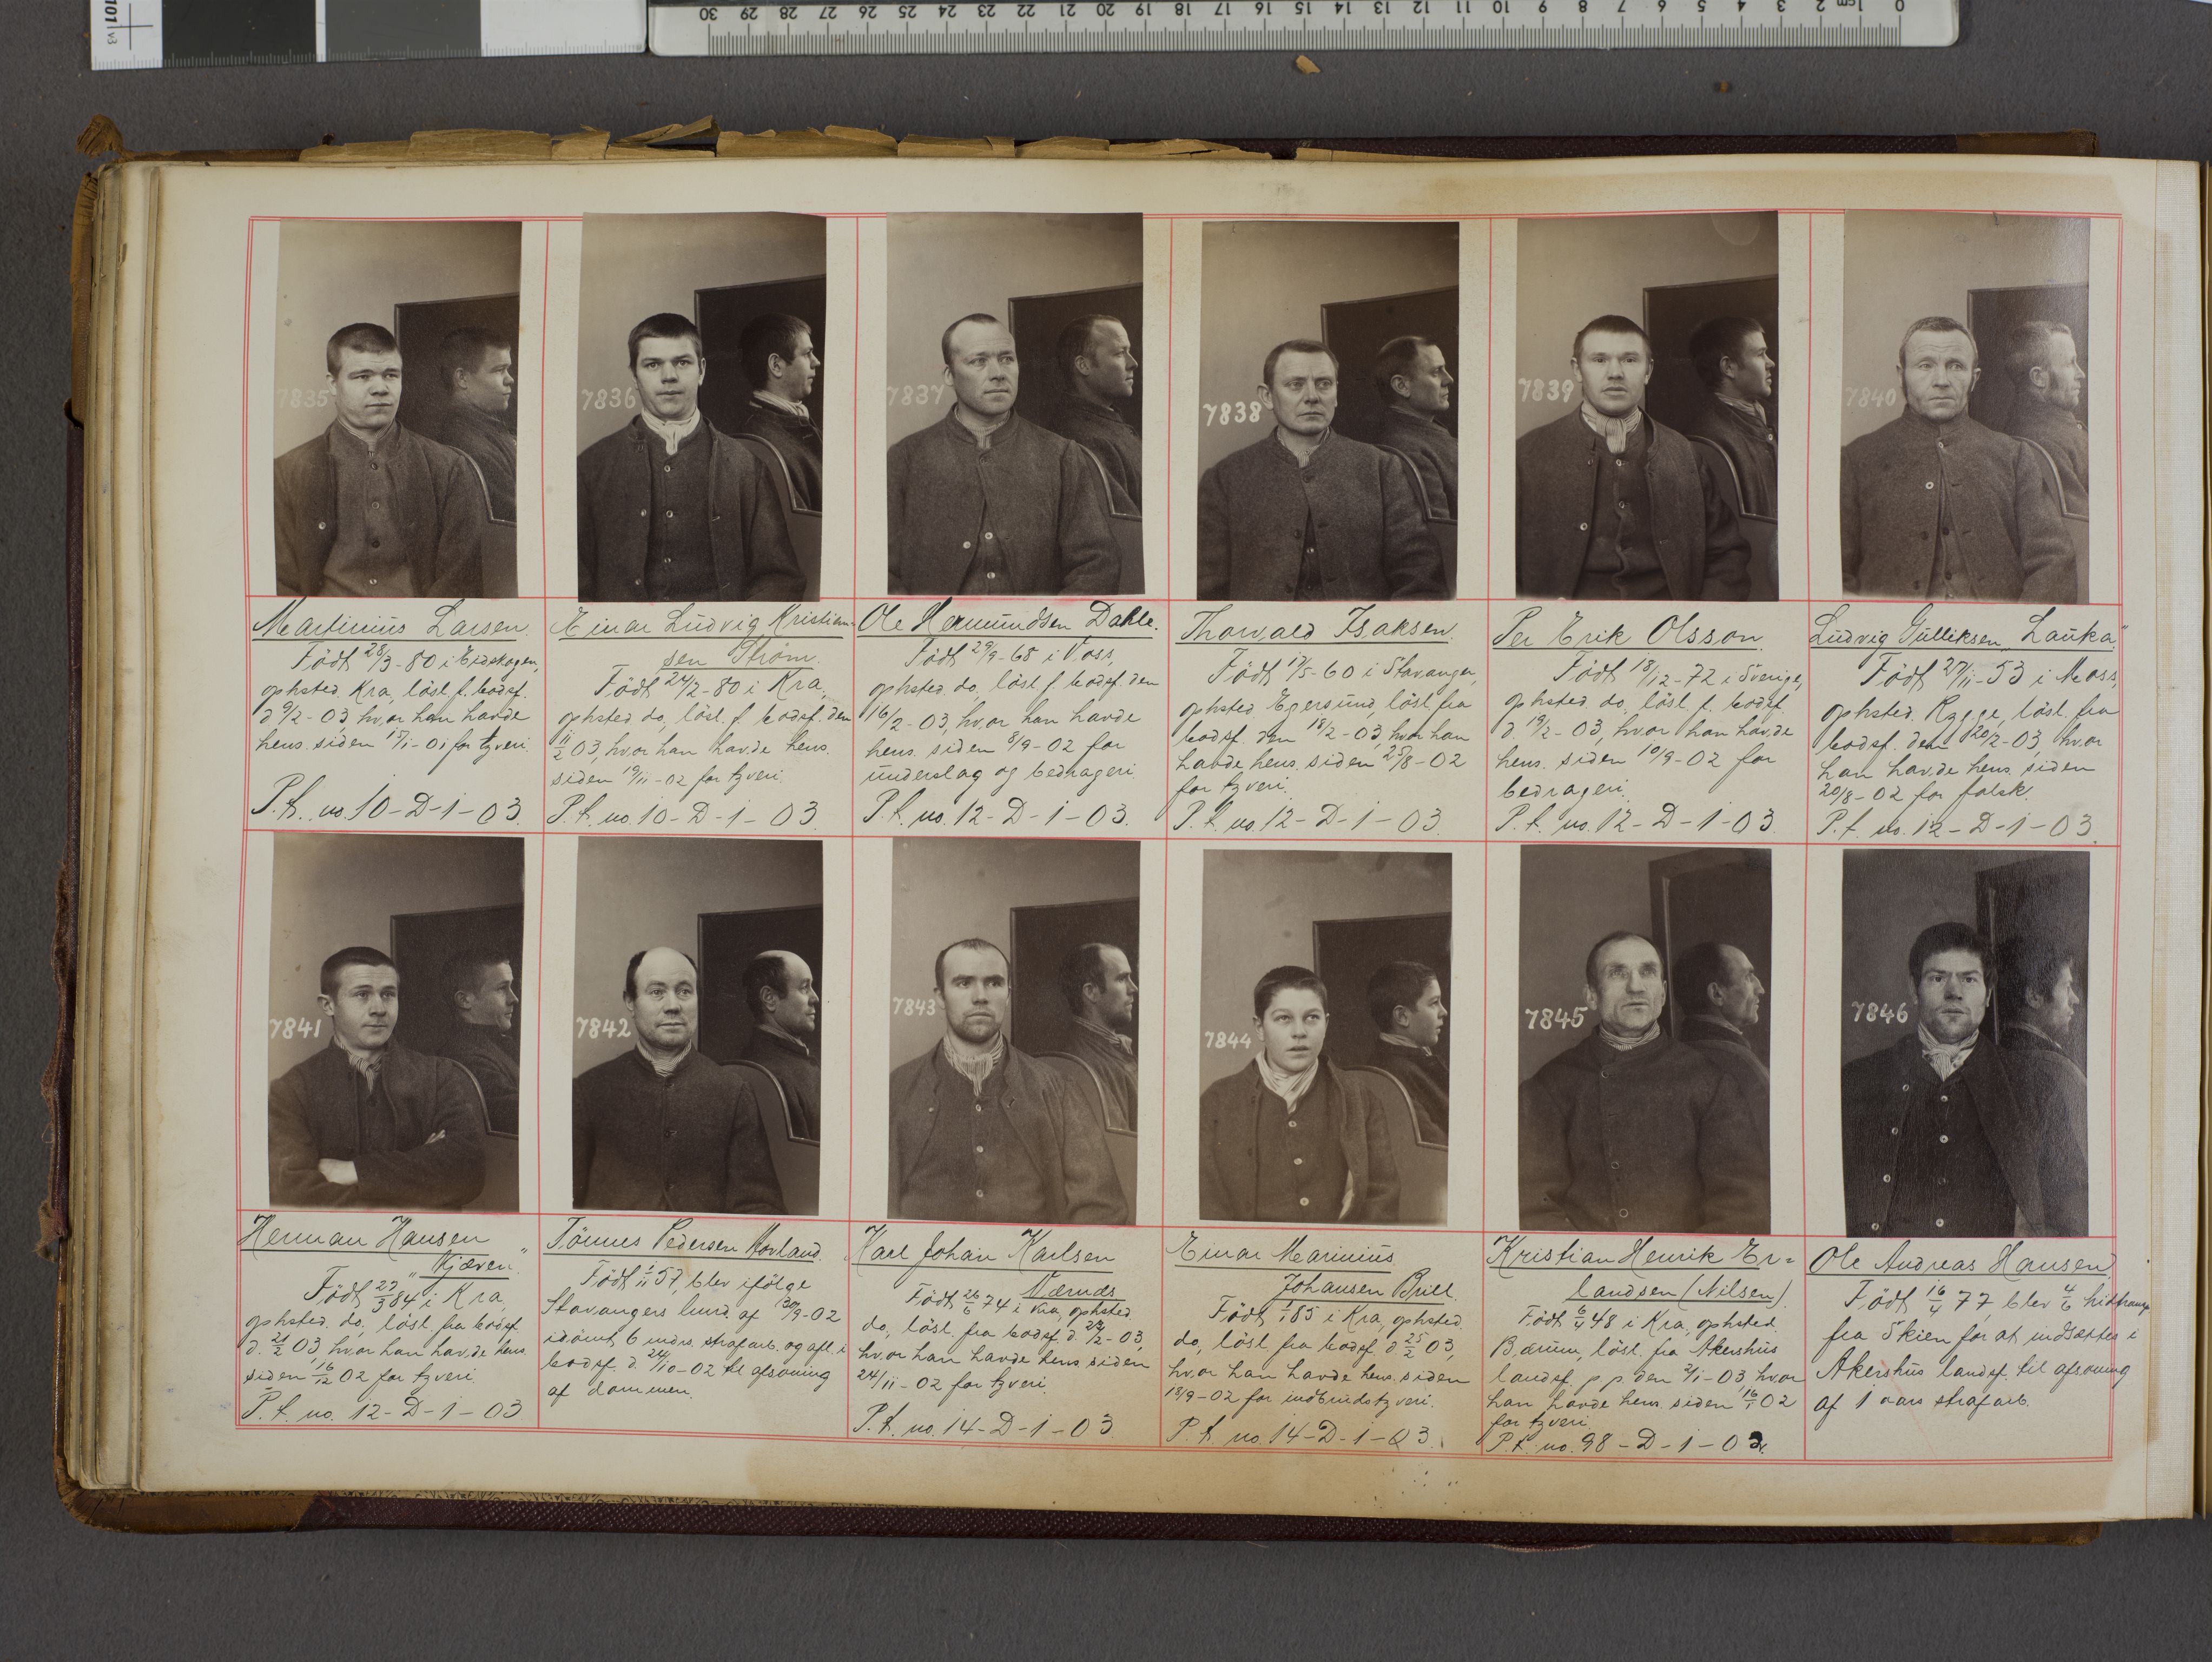 101 v3
30 29 28 27 26 25 24 23 22 21 20 19 18 17 16 15 14 13 12 11 10 9 8 7 6 5 4 3 2 1cm 0
7835
7836
7837
7838
7839
7840
Martinius Larsen.
Født 28/3-80 i Eidskogen,
ophsted. Kra, løsl. f. bodsf.
d 9/2-03, hvor han havde
hens. siden 15/1-01 for tyveri.
P.f. no. 10-D-1-03.
Einar Ludvig Kristian-
sen Strøm.
Født 24/2-80 i Kra,
ophsted do, løsl. f. bodsf. den
11/2 03, hvor han havde hens.
siden 19/11-02 for tyveri.
P.f. no. 10-D-1-03.
Ole Hermundsen Dahle.
Født 29/9-68 i Voss,
ophsted. do, løsl f. bodsf. den
16/2-03, hvor han havde
hens. siden 8/9-02 for
underslag og bedrageri.
P.f. no. 12-D-1-03.
Thorvald Isaksen.
Født 17/5-60 i Stavanger,
ophsted. Egersund, løsl. fra
bodsf. den 18/2-03, hvor han
havde hens. siden 25/8-02
for tyveri.
P.f. no. 12-D-1-03.
Per Erik Olsson.
Født 18/12-72 i Sverige,
ophsted. do. løsl. f. bodsf.
d. 19/2-03, hvor han havde
hens. siden 10/9-02 for
bedrageri.
P.f. no. 12-D-1-03.
Ludvig Gulliksen „Lauka"
Født 27/11-53 i Moss,
ophsted. Rygge, løsl. fra
bodsf. den 20/2-03, hvor
han havde hens. siden
20/8-02 for falsk.
P.f. no. 12-D-1-03.
7841
7842
7843
7844
7845
7846
Herman Hansen
„Kjæven"
Født 27/3 84 i Kra,
ophsted. do, løsl. fra bodsf.
d. 21/2 03, hvor han havde hens.
siden 16/12 02 for tyveri.
P.f. no. 12-D-1-03
Tønnes Pedersen Hovland.
Født 1/11 57, blev ifølge
Stavangers lursd. af 30/9-02
idømt 6 mdrs. strafarb. og afl. i
bodsf. d. 24/10-02 til afsoning
af dommen.
Karl Johan Karlsen
Nærnds
Født 26/6 74 i Kra, ophsted.
do, løsl. fra bodsf. d. 24/2-03,
hvor han havde hens. siden
24/11-02 for tyveri.
P.f. no. 14-D-1-03.
Einar Marinius
Johansen Brill.
Født 1/1 85 i Kra, ophsted.
do, løsl fra bodsf. d. 25/2 03,
hvor han havde hens. siden
18/9-02 for indbrudstyveri.
P.f. no. 14-D-1-03.
Kristian Henrik Er=
landsen (Nilsen).
Født 6/4 48 i Kra, ophsted.
Bærum, løsl. fra Akershus
landsf. p p. den 2/1-03 hvor
han havde hens. siden 16/1 02
for tyveri.
P.f. no. 98-D-1-02.
Ole Andreas Hansen.
Født 16/4 77, blev 4/6 hidtransp.
fra Skien for at indsættes i
Akershus landsf. til afsoning
af 1 aars strafarb.